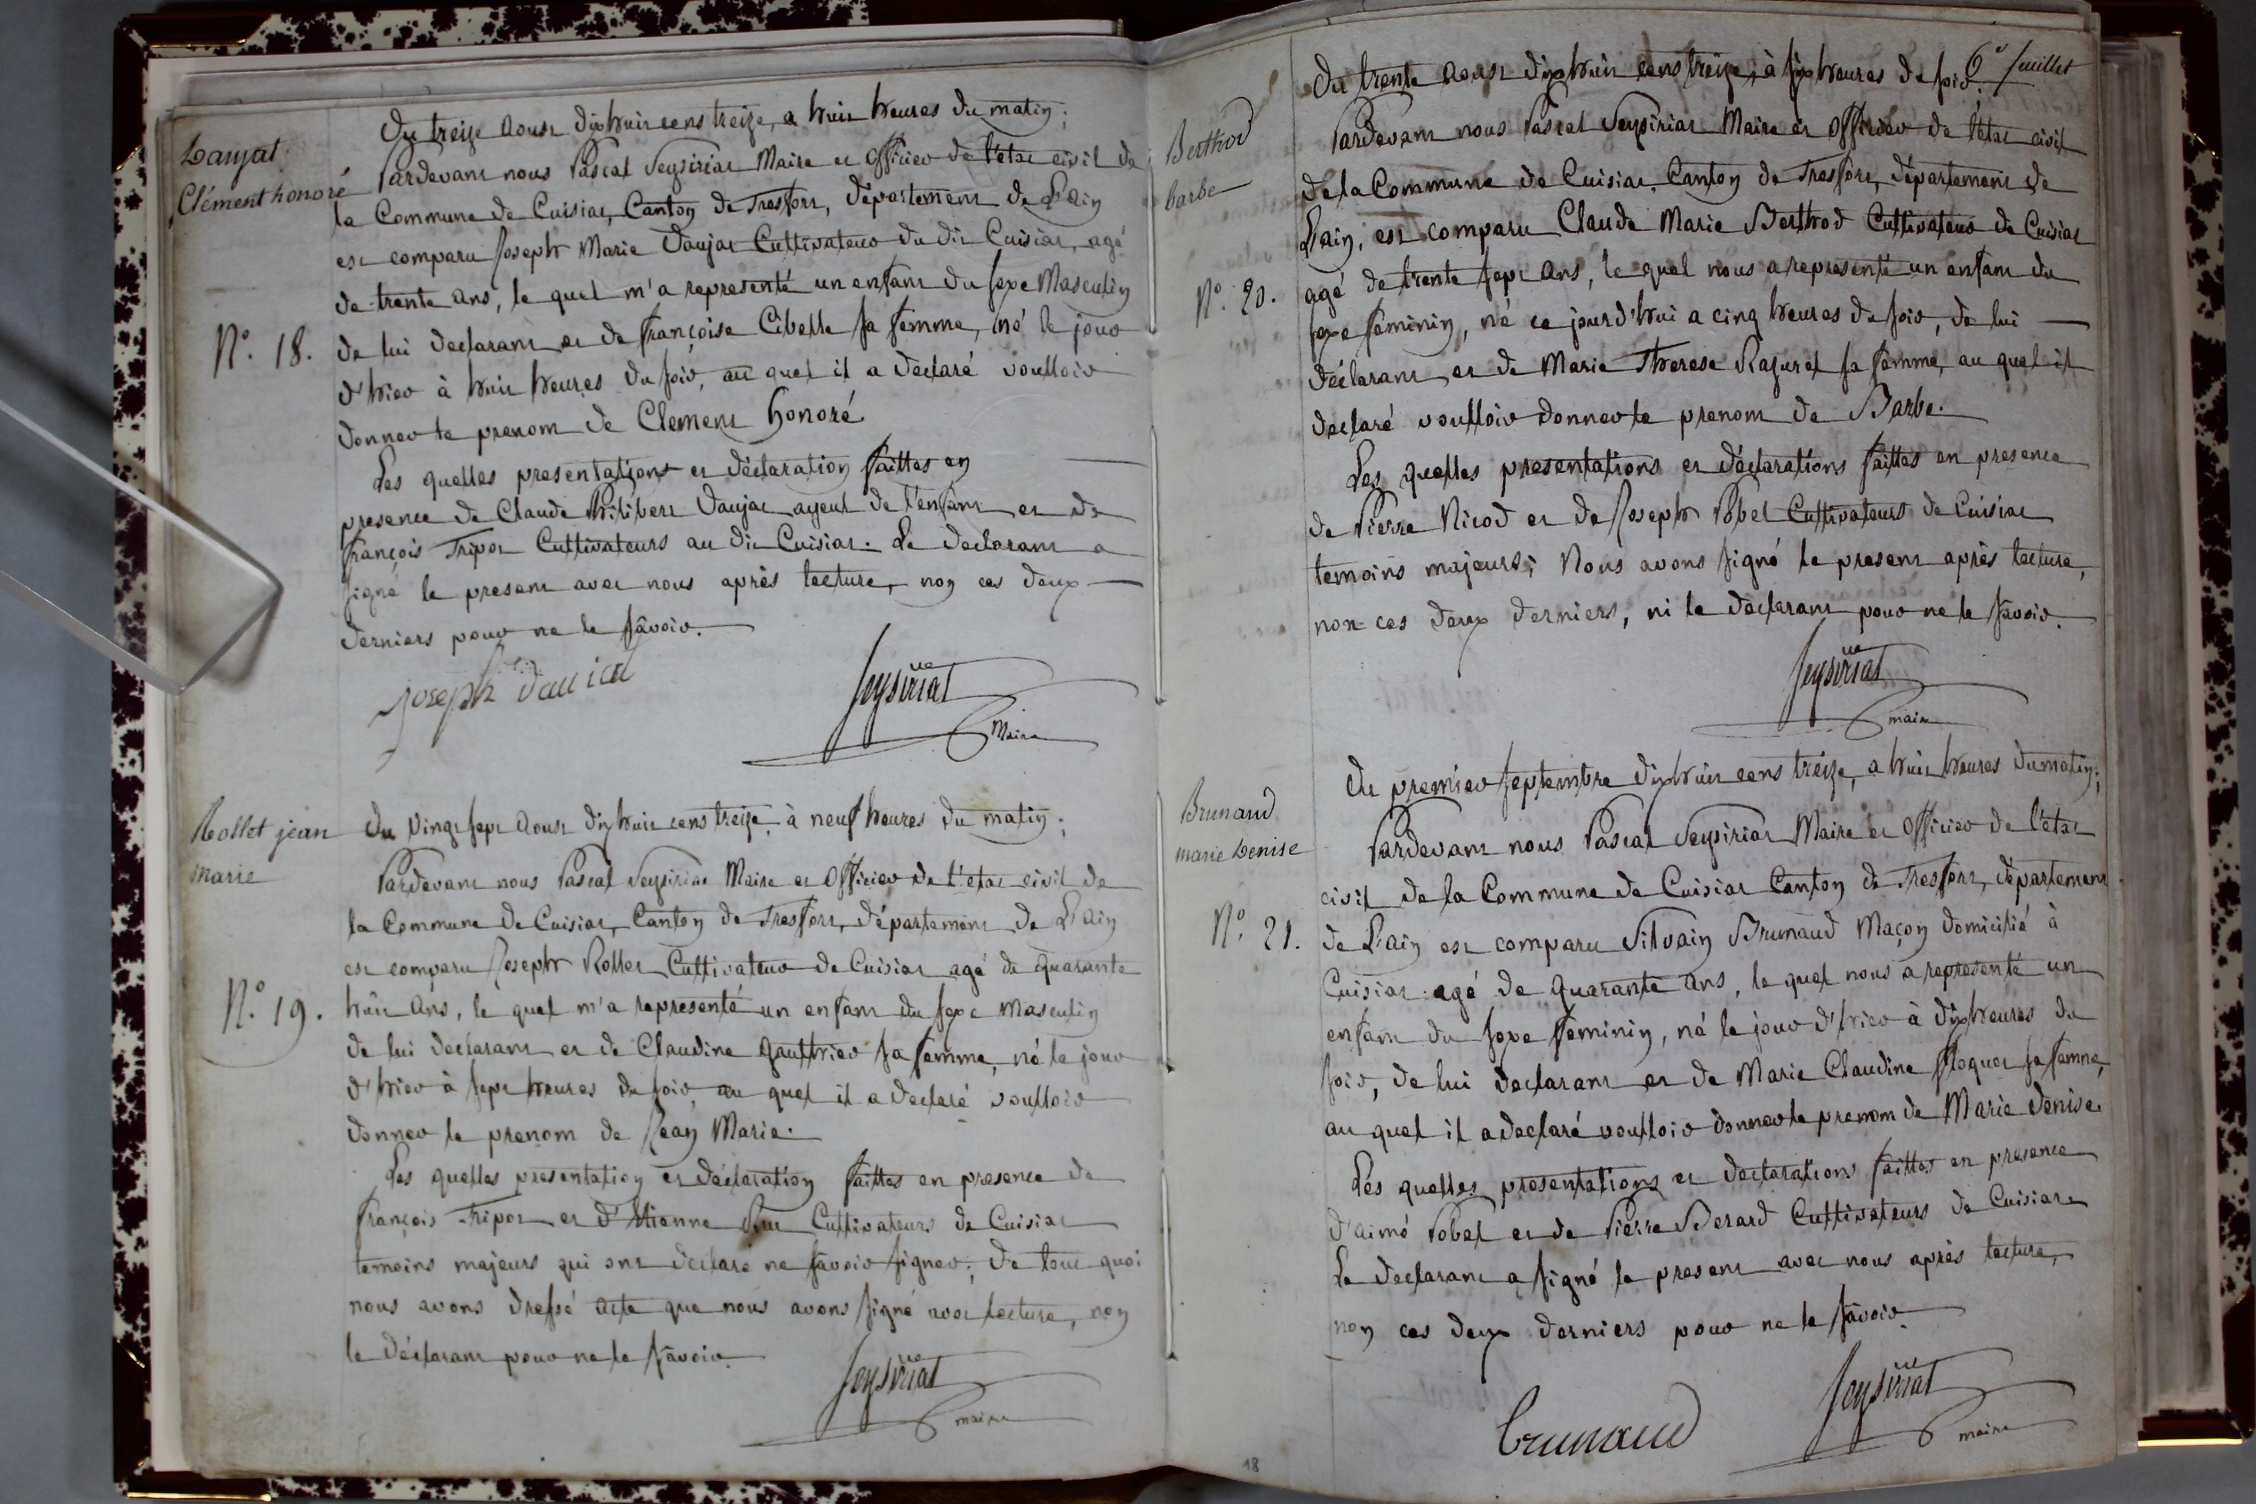 Daujat
Clément honoré
N.° 18.
Du treize Aoust dixhuit cens treize, a huit heures du matin;
Pardevant nous Pascal Seysiriat Maire et Officier de l'état civil de
la Commune de Cuisiat, Canton de Treffort, département de L'ain
est comparu Joseph Marie Daujat Cultivateur du dit Cuisiat, agé
de trente ans, le quel m'a representé un enfant du sexe Masculin
de lui declarant et de françoise Cibelle sa femme, né le jour
d'hier à huit heures du soir, au quel il a declaré voulloir
donner le prenom de Clement honoré
Les quelles presentations et déclaration faittes en
presence de Claude Philibert Daujat ayeul de l'enfant et de
françois Tripoz Cultivateurs au dit Cuisiat. Le declarant a
signé le present avec nous après lecture, non ces deux
derniers pour ne le sâvoir.
joseph daujat
Seysiriat
Maire
Rollet jean
marie
N.° 19.
Du vingt sept Aoust dixhuit cens treize, à neuf heures du matin;
Pardevant nous Pascal Seysiriat Maire et Officier de l'état civil de
la Commune de Cuisiat, Canton de Treffort, département de L'ain
est comparu Joseph Rollet Cultivateur de Cuisiat agé de quarante
huit ans, le quel m'a representé un enfant du sexe masculin
de lui declarant et de Claudine Gauthier sa femme, né le jour
d'hier à sept heures du soir, au quel il a declaré voulloir
donner le prenom de Jean Marie.
Les quelles presentation et déclaration faittes en presence de
françois Tripoz et d'Etienne Cultivateurs de Cuisiat
temoins majeurs qui ont declaré ne savoir signer; de tout quoi
nous avons dressé acte que nous avons signé avec lecture, non
le déclarant pour ne le sâvoir.
Seysiriat
maire
6.e feuillet
Berthod
barbe
N.° 20.
Du trente Aoust dixhuit cens treize, à six heures du soir.
Pardevant nous Pascal Seysiriat Maire et Officier de l'état civil
de la Commune de Cuisiat, Canton de Treffort, département de
L'ain, est comparu Claude Marie Berthod Cultivateur de Cuisiat
agé de trente sept ans, le quel nous a representé un enfant du
sexe féminin, né ce jourd'hui a cinq heures du soir, de lui
déclarant et de Marie Therese Rasurel sa femme, au quel il
declaré voulloir donner le prenom de Barbe.
Les quelles presentations et déclarations faittes en presence
de Pierre Nicod et de Joseph Pobel Cultivateurs de Cuisiat
temoins majeurs; Nous avons signé le present après lecture,
non ces deux derniers, ni le declarant pour ne le sâvoir.
Seysiriat
maire
Brunaud
marie Denise
N.° 21.
Du premier septembre dixhuit cens treize, a huit heures du matin;
Pardevant nous Pascal Seysiriat Maire et Officier de l'état
civil de la Commune de Cuisiat Canton de Treffort, département
de L'ain est comparu Silvain Brunaud Maçon domicilié à
Cuisiat agé de quarante ans, le quel nous a representé un
enfant du sexe feminin, né le jour d'hier à dix heures du
soir, de lui declarant et de Marie Claudine floquet sa femme,
au quel il a declaré voulloir donner le prenom de Marie Denise.
Les quelles presentations et declarations faittes en presence
d'aimé Pobel et de Pierre Berard Cultivateurs de Cuisiat
Le declarant a signé le present avec nous après lecture,
non ces deux derniers pour ne le sâvoir.
brunaud
Seysiriat
maire
18